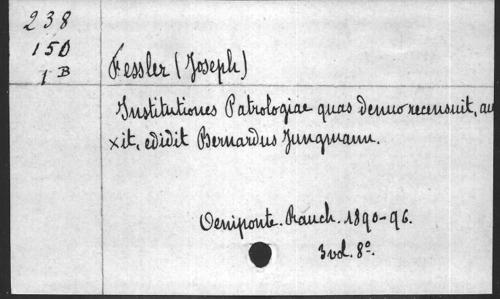 238
150
1 B
Fessler (Joseph)
Institutiones Patrologiae quas denuo recensuit, au
xit, edidit Bernardus Jungmann.
Oeniponte. Rauch. 1890-96.
3 vol. 8º.